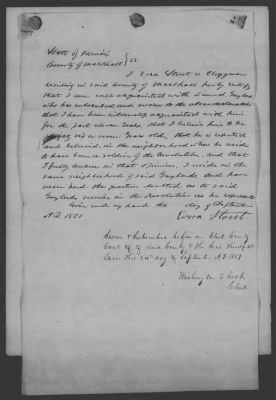 State of Illinois
County of Marshall } ss
I Ezra Stout a Clergyman
residing in said County of Marshall hereby certify
that I am well acquainted with Lemuel Gaylord
who has subscribed and sworn to the above declaration
that I have been intimately acquainted with him
for the past eleven years that I believe him to be
eighty six or seven years old, that he is reputed
and believed, in the neighborhood where he resides
to have been a soldier of the Revolution, and that
I fully concur in that opinion, I reside in the
same neighborhood of said Gaylords and have
never had the question doubted as to said
Gaylords service in the Revolution as he represents
Given under my hand this day of September
A.D. 1851
Ezra Stout
Sworn & subscribed before me Clerk County
Court of
this 24th day of September A.D. 1851
Washington E. Cook
Clerk